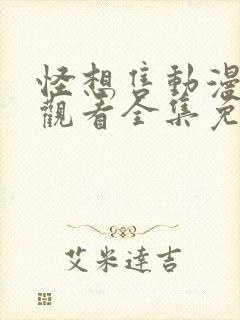 怪想隻動漫
觀看全集免
艾米達吉